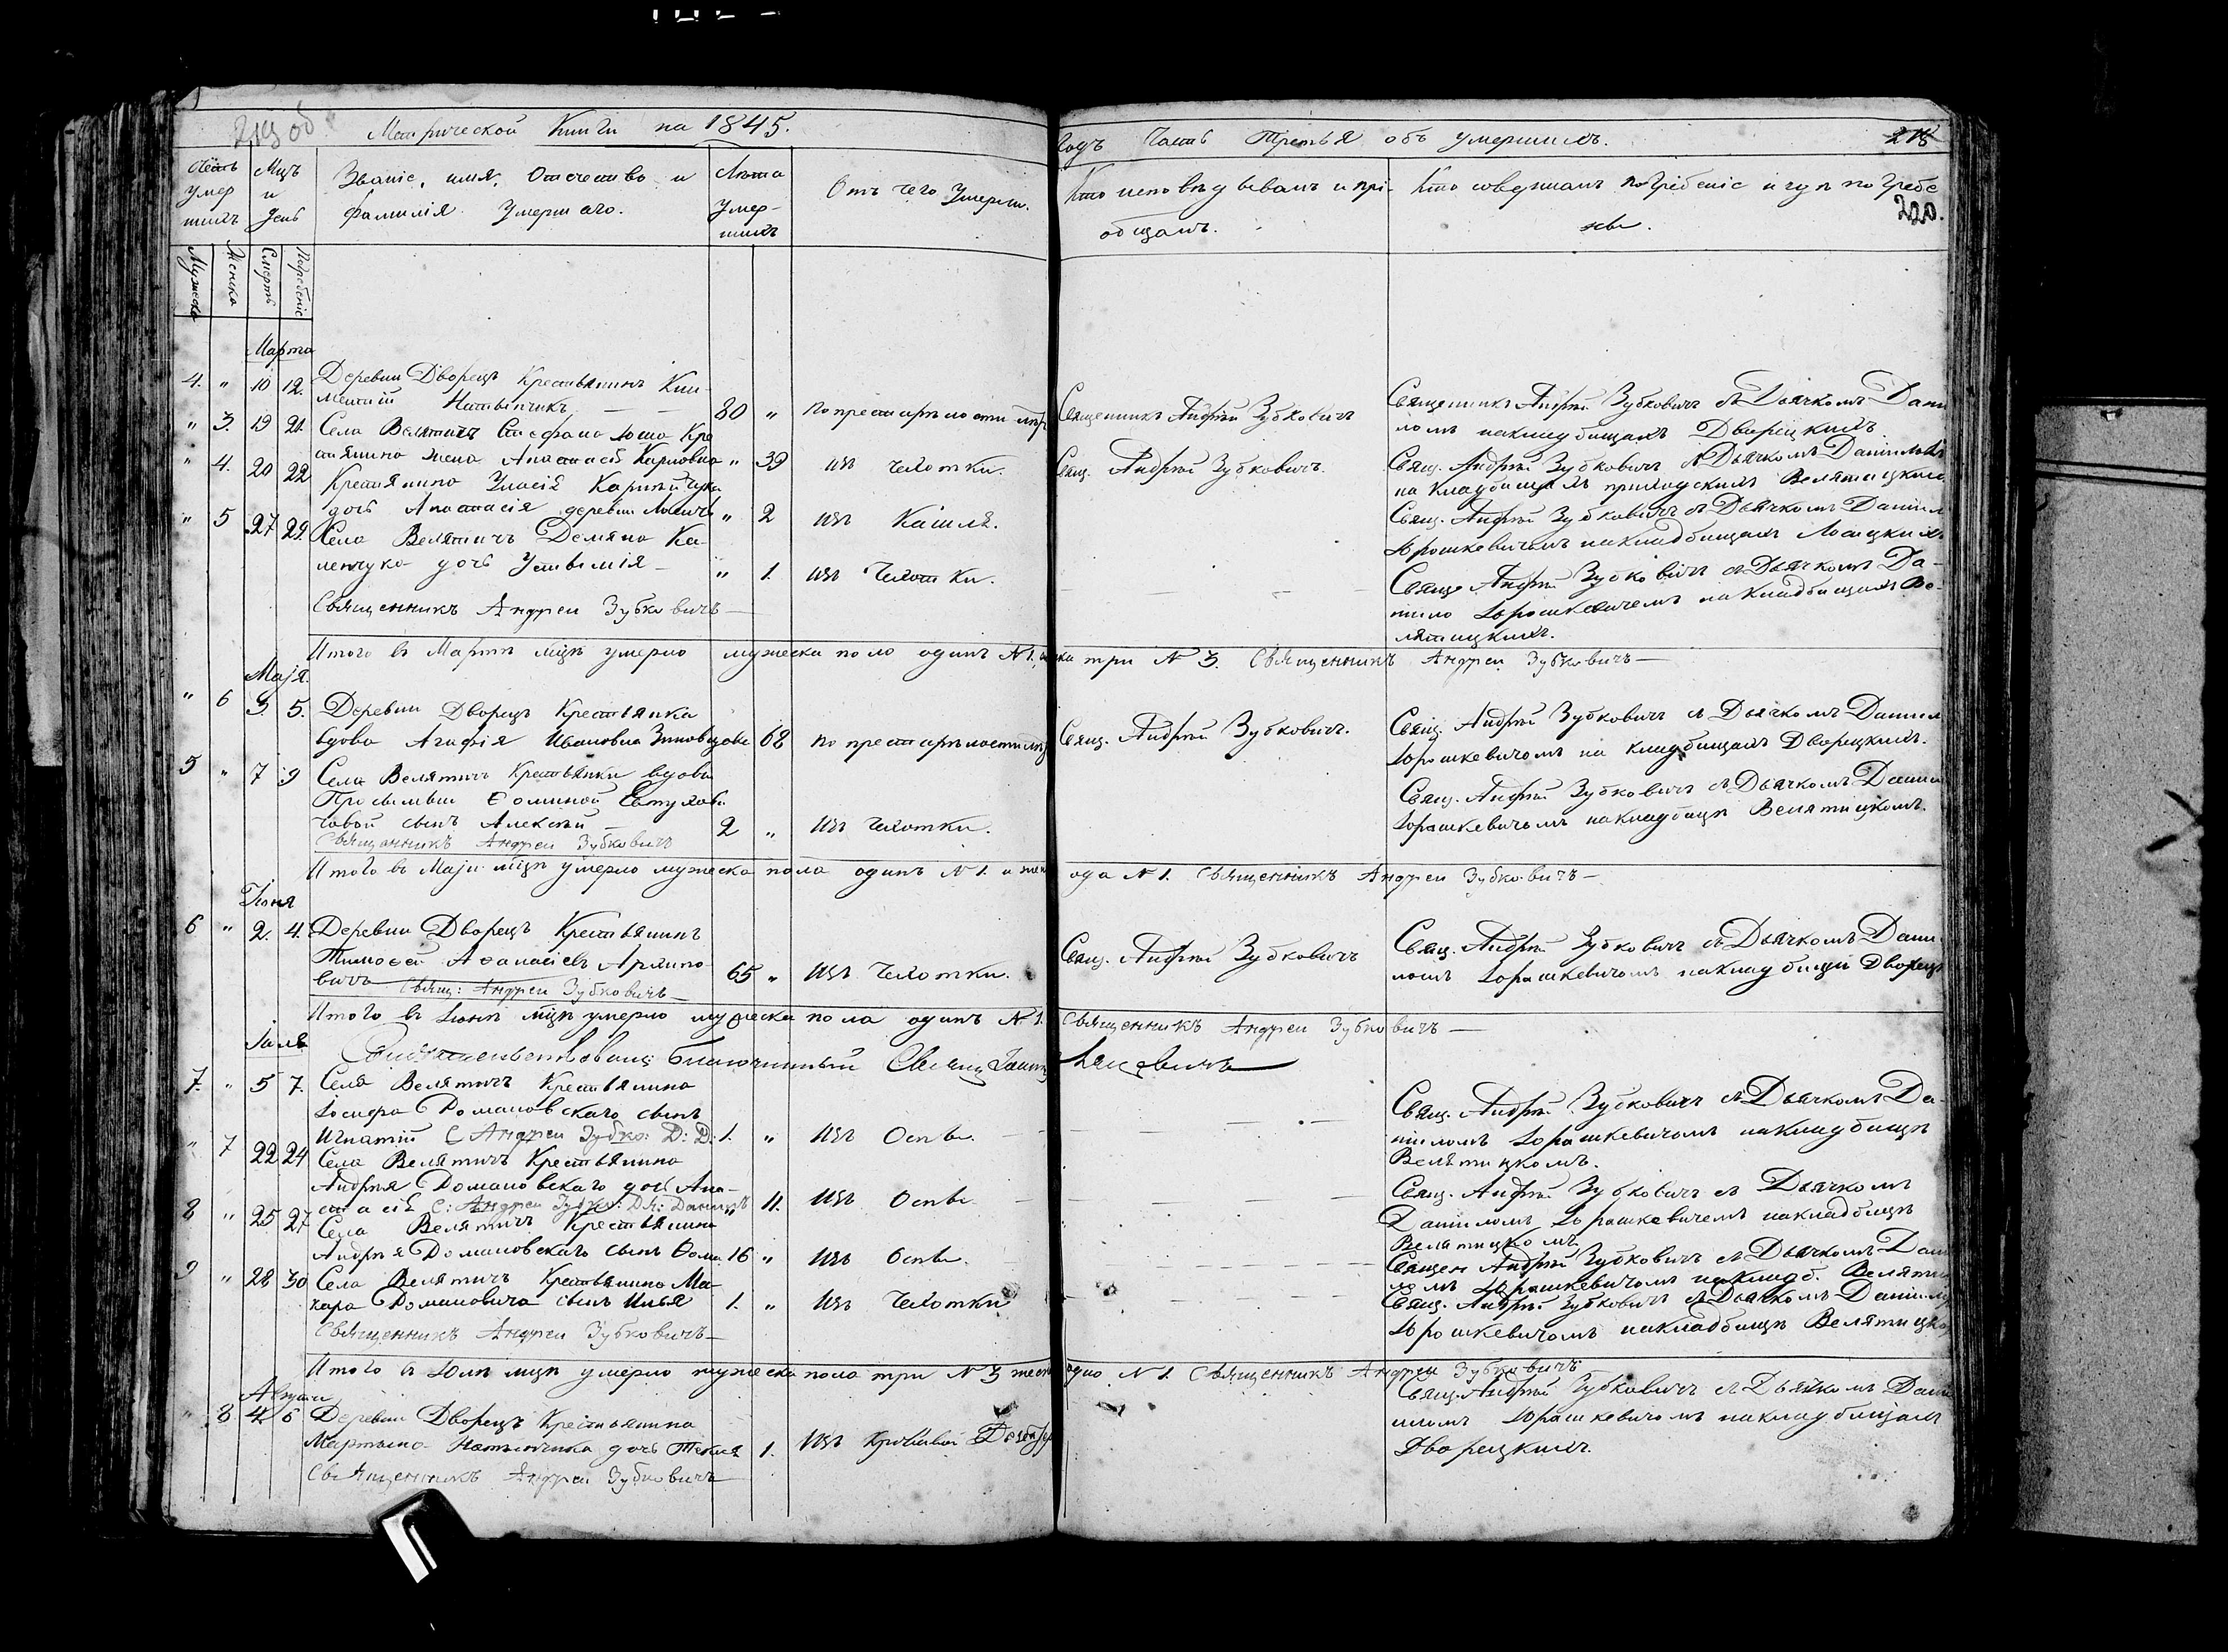 219 об
Метрической Книги на 1845.
Годъ Часть Третья объ умершихъ.
220.
Счетъ умер шихъ
Мцъ и день
Званіе, имя, Отечество и фамилія Умершаго.
Лѣта Умер- шихъ
Отъ чего Умерли.
Кто исповѣдывалъ и прі- общалъ.
Кто совершалъ погребеніе и гдѣ погребе ны.
Мужеска
Женска
Смерть
Погребеніе
Марта
4. " 10 12. Деревни Дворецъ Крестьянинъ Кли-
ментій 80 "
Священникъ Андрѣй Зубковичъ
Священникъ Андрѣй Зубковичъ съ Дьячкомъ Дани
ломъ на кладбищахъ Дворецкихъ
" 3. 19 21. Села Велятичъ Стефана Кре
стьянина жена Анастасія Карповна " 39 изъ Чахотки.
Свящ. Андрѣй Зубковичъ.
Свящ. Андрѣй Зубковичъ съ Дьячкомъ
на Кладбищахъ приходскихъ
" 4. 20 22 Крестьянина
дочь Анастасія деревни " 2 изъ Кашля.
Свящ. Андрѣй Зубковичъ съ Дьячкомъ Данил
Юрашкевичомъ на кладбищахъ
" 5 27 29. Села Велятичъ Демяна Ка-
ленчука дочь " 1. изъ Чахотки.
Свящ. Андрѣй Зубковичъ съ Дьячкомъ Да-
нило Юрашкевичемъ на Кладбищахъ Ве-
лятицкихъ.
Священникъ Андреи Зубковичъ
Итого въ Мартѣ мцѣ умерло мужеска пола одинъ N 1. ска три N 3. Священникъ Андреи Зубковичъ
Маія.
" 6 3. 5. Деревни Дворецъ Крестьянка
вдова Агафія Ивановна 68
Свящ. Андрѣй Зубковичъ.
Свящ. Андрѣй Зубковичъ съ Дьячкомъ Данил
Юрашкевичомъ на кладбищахъ Дворецкихъ.
5 " 7 9 Села Велятичъ Крестьянки вдовы
човой сынъ Алексѣй 2 " изъ Чахотки.
Свящ. Андрѣй Зубковичъ съ Дьячкомъ Данил
Юрашкевичомъ на кладбищѣ Велятицкомъ.
Священникъ Андреи Зубковичъ
Итого въ Маіи мцѣ умерло мужеска пола одинъ N 1. и жен одна N 1. Священникъ Андреи Зубковичъ
Іюня
6 " 2. 4. Деревни Дворецъ Крестьянинъ
Тимоѳей Аѳанасіевъ
вичъ 65 " изъ Чахотки.
Свящ. Андрѣй Зубковичъ
Свящ. Андрѣй Зубковичъ съ Дьячкомъ Дани
ломъ Юрашкевичомъ на кладбищи Дворец
Свящ: Андреи Зубковичъ
Итого въ Іюнѣ мцѣ умерло мужеска пола одинъ N 1. Священникъ Андреи Зубковичъ
Іюля
Благочинный
7. " 5 7. Села Велятичъ Крестьянина
Іосифа Романовскаго сынъ
Игнатій С Андреи Зубко: Д: Д: 1. " изъ Оспы.
Свящ. Андрѣй Зубковичъ съ Дьячкомъ Да-
ниломъ Юрашкевичомъ на Кладбищѣ
Велятицкомъ.
" 7 22 24 Села Велятичъ Крестьянина
Андрѣя Романовскаго дочь Ана-
стасія С: Андреи Зубко: " 11. изъ Оспы
Свящ. Андрѣй Зубковичъ съ Дьячкомъ
Даниломъ Юрашкевичемъ на кладбищѣ
Велятицкомъ
8 " 25 27 Села Велятичъ Крестьянина
Андрѣя Романовскаго сынъ Ѳома 16 " изъ Оспы.
Священ Андрѣй Зубковичъ съ Дьячкомъ Дани
ломъ Юрашкевичомъ на Кладб. Веляти
9 " 28 30 Села Велятичъ Крестьянина Ма-
кара Романовича сынъ Илья 1. " изъ Чахотки
Свящ. Андрѣй Зубковичъ съ Дьячкомъ
Юрошкевичомъ на кладбищѣ Велятицко
Священникъ Андреи Зубковичъ
Итого въ Юлѣ мцѣ умерло мужеска пола три N 3 женс одна N 1. Священникъ Андреи Зубковичъ
Августа
" 8 4 6 Деревни Дворецъ Крестьянина
Мартына дочь Текля 1. изъ Кровавой
Свящ. Андрѣй Зубковичъ съ Дьячкомъ Дани
ломъ Юрашкевичомъ на кладбищахъ
Дворецкихъ.
Священникъ Андреи Зубковичъ